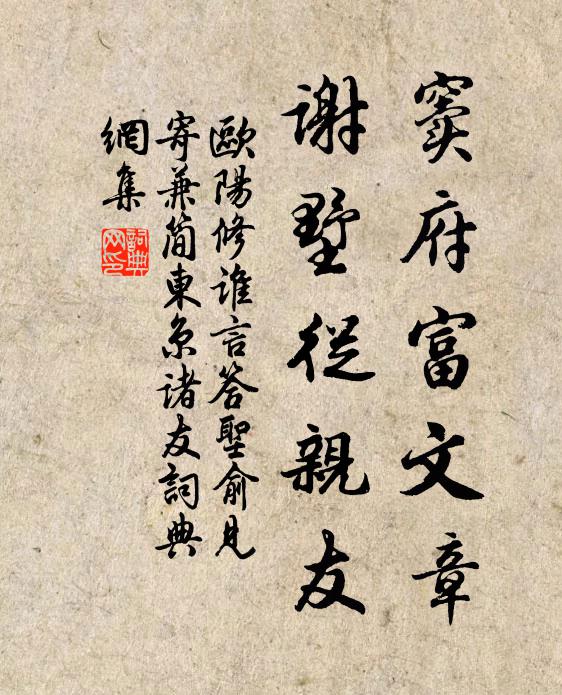 竇府富文章
謝墅從親友
歐陽修誰言答聖俞見
寄兼簡東京諸友詞典
網集
詞典
网印